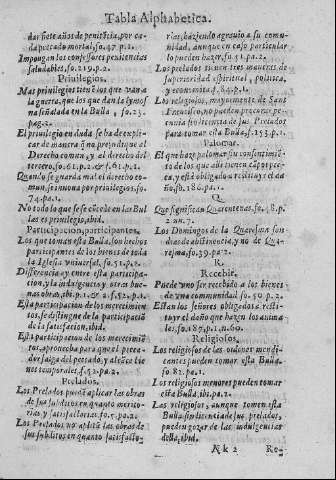 Tabla Alphabetica.
dar siete años de penitẽcia, por ca-
da pecado mortal, fo. 47. p. 1.
Impongan los confessores penitencias
saludables, fo. 219. p. 2.
Priuilegios.
Mas priuilegios tienẽ los que van a
la guerra, que los que dan la lymos
na señalada en la Bulla, fo. 25.
pag. 2.
El priuilegio en duda se ha de expli-
car de manera q̃ no prejudique al
Derecho comun, y al derecho del
tercero, fo. 61. p. 2. & f. 61. p. 1.
Quando se guarda mal el derecho co-
mun, se innoua por priuilegios, fo.
74. pa. 1.
No todo lo que se cõcede en las Bul
las es priuilegio, ibid.
Participacion, participantes.
Los que toman esta Bulla, son hechos
participantes de los bienes de toda
la Iglesia vniuersal, fo. 51. p. 2.
Differencia ay entre esta participa-
cion, y la indulgencia y otras bue-
nas obras, ibi. p. 1. & 2. fo. 52. p. 1.
Esta participacion de los merecimien
tos, se distingue de la participaciõ
de la satisfacion, ibid.
Esta participacion de los merecimiẽ
tos, aprouecha para que el peca-
dor salga del peccado, y alcãce bie
nes temporales, f. 52. pa. 2.
Prelados.
Los Prelados puedẽ applicar las obras
de sus subditos en quanto merito-
rias y satisfactorias, fo. p. 2.
Los Prelados no aplicã las obras de
sus subditos en quanto satisfacto-
rias, haziendo agrauio a su comu-
nidad, aunque en caso particular
lo pueden hazer, fo. 51. pa. 2.
Los prelados tienen tres maneras de
superioridad espiritual, politica,
y economica, fo. 84. p. 1.
Los religiosos, mayormente de Sant
Francisco, no pueden procurar li-
cencia sin licencia de sus Prelados
para tomar esta Bulla, f. 153. p. 1.
Palomar.
El que haze palomar sin consentimiẽ
to de los que alli tienen
ca, y esta obligado a restituyr el da
ño, fo. 180. pa. 1.
Q.
Que significa Quarentenas, fo.
2. nu. 7.
Los Domingos de la Quaresma son
dias de abstinencia, y no de Qua-
resma, fo. 39. pa. 2.
R.
Recebir.
Puede vno ser recebido a los bienes
de vna communidad fo. 50. p. 2.
Estan los señores obligados a resti-
tuyr el daño que hazen los anima-
les, fo. 187. p. 1. n. 60.
Religiosos.
Los religiosos de las ordenes mendi-
cantes pueden tomar esta Bulla.
fo. 82. pa. 1.
Los religiosos menores pueden tomar
esta Bulla, ibi. pa. 2.
Los religiosos, aunque tomen esta
Bulla sin licencia de sus prelados,
pueden gozar de las indulgencias
della, ibid.
k 2 Re-